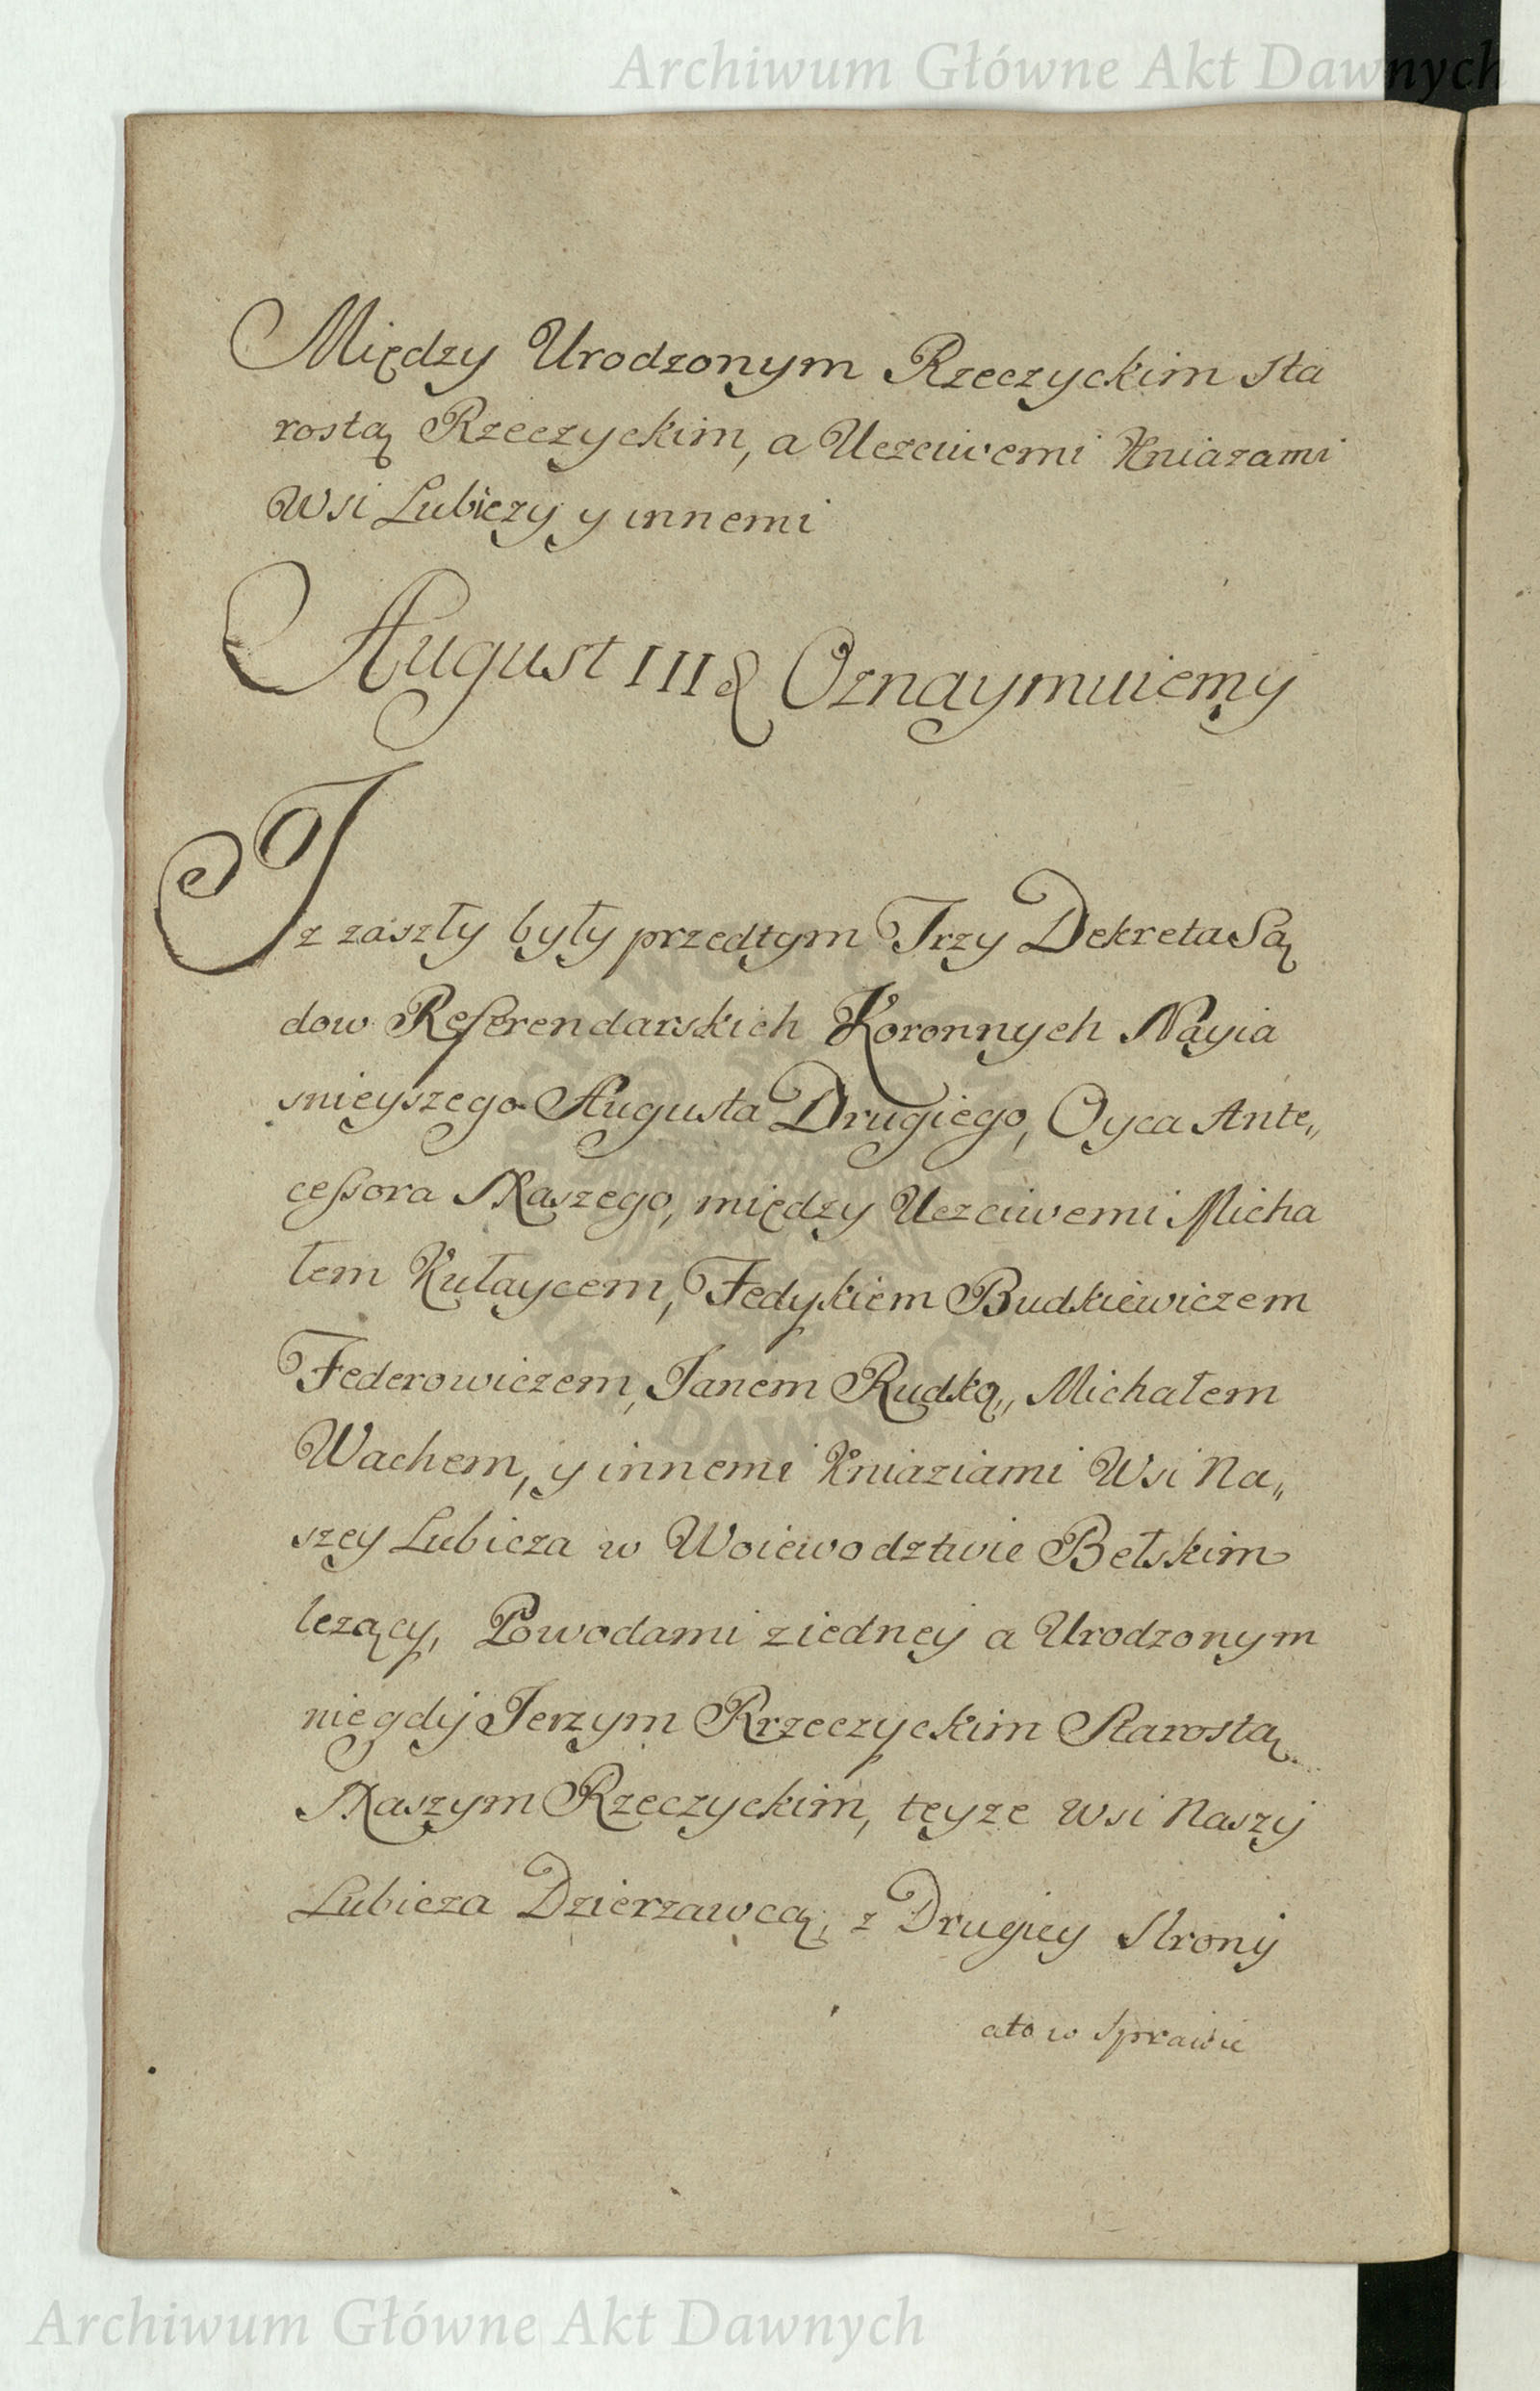 Archiwum Główne Akt Dawnych
Między Urodzonym Rzeczyckim Sta
rostą Rzeczyckim, a Uczciwemi Kniazami
Wsi Lubiczy y innemi
August III & Oznaymuiemy
Iz zaszły były przedtym Trzy Dekreta Są
dow Referendarskich Koronnych Nayia
snieyszego Augusta Drugiego, Oyca Ante„
cessora Naszego, między Uczciwemi Micha
łem Kułaycem, Fedykiem Budkiewiczem
Federowiczem, Janem Rudką,, Michałem
Wachem, y innemi Kniaziami Wsi Na„
szey Lubicza w Woiewodztwie Bełskim
lezący, Powodami ziedney a Urodzonym
niegdy Jerzym Rrzeczyckim Starostą
Naszym Rzeczyckim, teyze Wsi Naszy
Lubicza Dzierzawcą, z Drugiey Strony
ato w Sprawie
Archiwum Główne Akt Dawnych